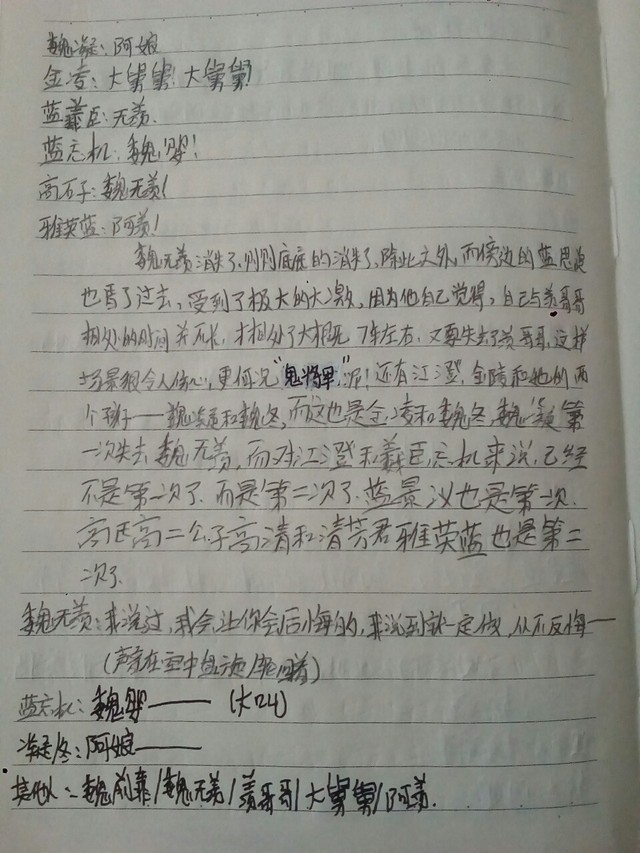 魏凝：阿娘
金凌：大舅舅！大舅舅！
蓝羲臣：无羡.
蓝忘机：魏婴！
高万子：魏无羡！
雅英蓝：阿羡！
魏无羡消失了，底底的消失了，除此之外，而傍边的蓝思追
也看了过去，受到了极大的大激，因为他自己觉得，自己与羡哥哥
相处的时间并不长，才相处了大概死7年左右，又要失去了羡哥哥，这样
场景狠令人伤心，更何况"鬼将军"呢！还有江澄，金陵和她的两
个孩子——魏凝和魏冬，而这也是金凌和魏冬魏凝第
一次失去魏无羡，而对江澄和羲臣忘机来说，已经
不是第一次了，而是第二次了，蓝景仪也是第一次.
高氏高二公子高清和清芳君雅英蓝也是第二
次了.
魏无羡：我说过，我会让你会后悔的，我说到就一定做，从不反悔——
（声音在空中盘旋/轮回着）
蓝忘机：魏婴——（大叫）
凝/冬：阿娘——
其他人：魏前辈/魏无羡/羡哥哥/大舅舅/阿羡.